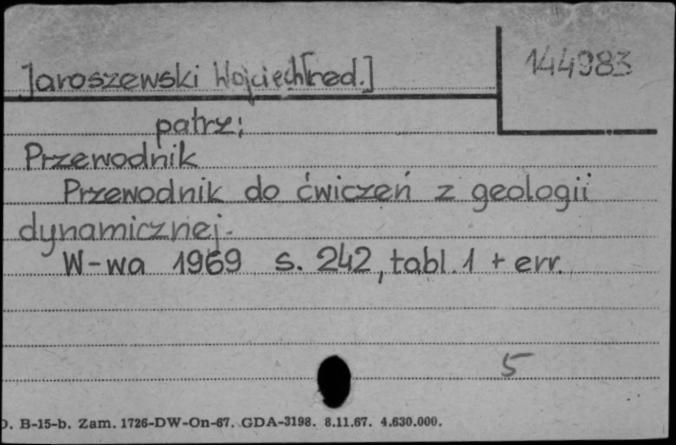 Jaroszewski Wojciech [red.]
144983
patrz:
Przewodnik
Przewodnik do ćwiczeń z geologii
dynamicznej.
W-wa 1969 s. 242, tabl. 1 + err.
5
D. B-15-b. Zam. 1726-DW-On-67. GDA-3198. 8.11.67. 4.630.000.